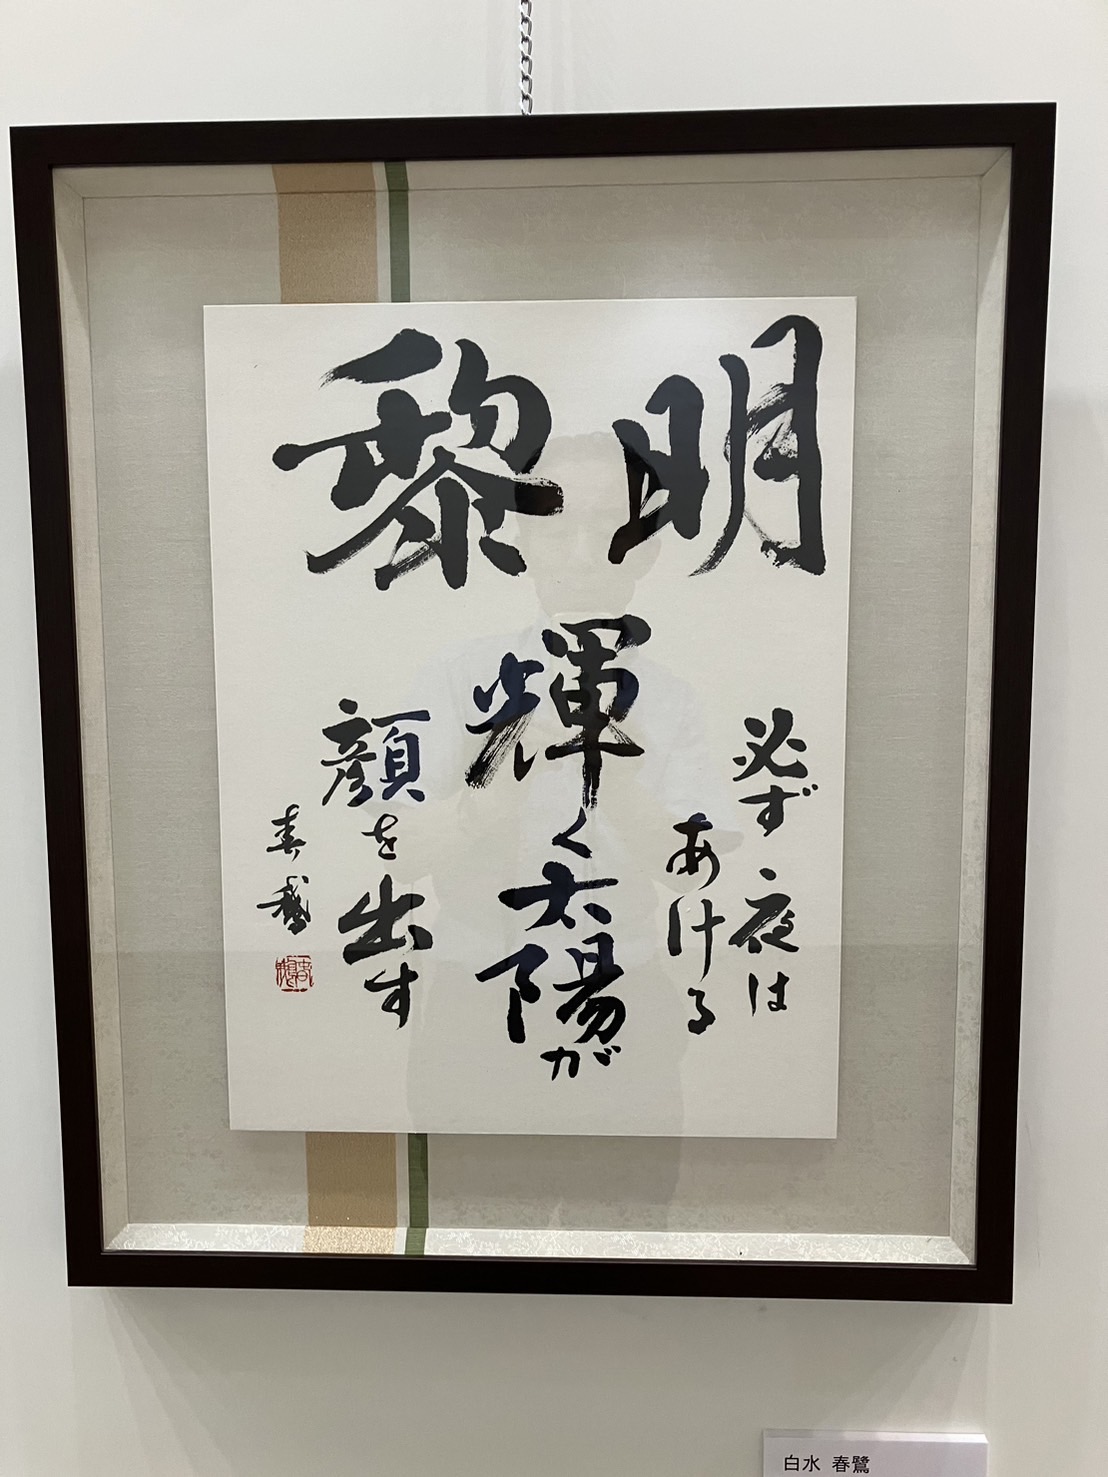 黎明
必ず夜は
あける
輝く太陽が
顔を出す
春鷺
白水 春鷺